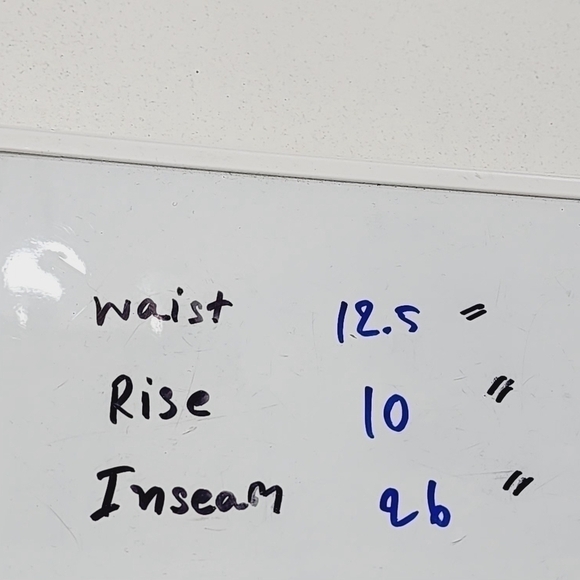 waist 12.5 "
Rise 10 "
Inseam 26 "